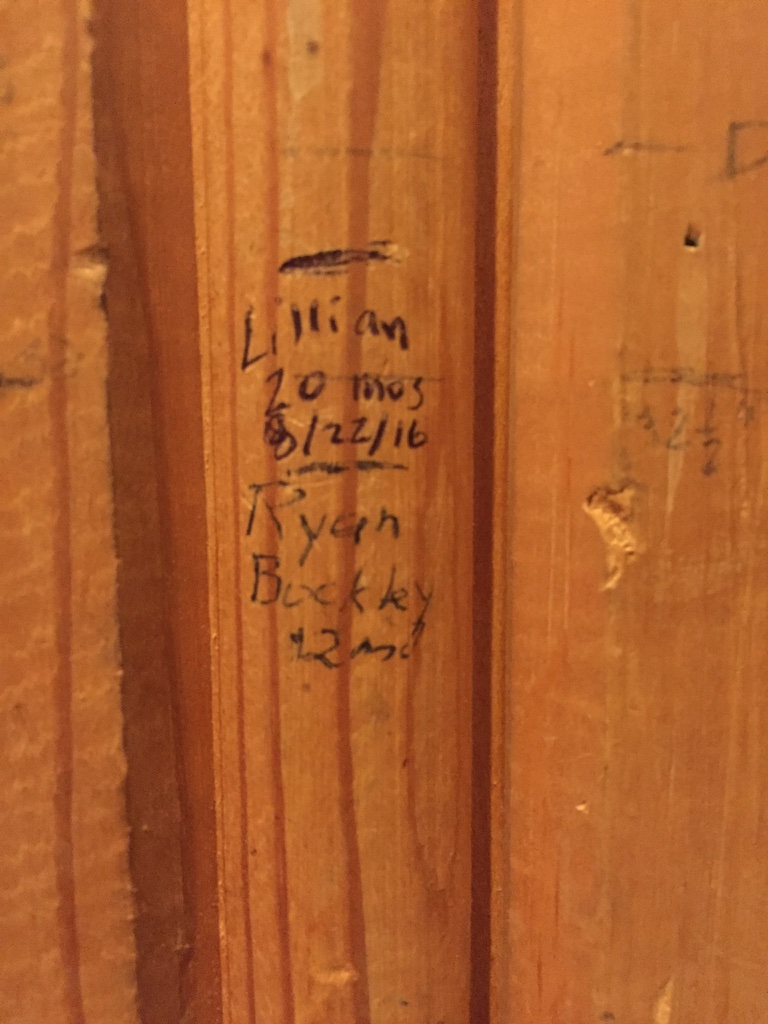 Lillian
20 mos
8/22/16
Ryan
Buckley
12 mo
D
2 1/2"